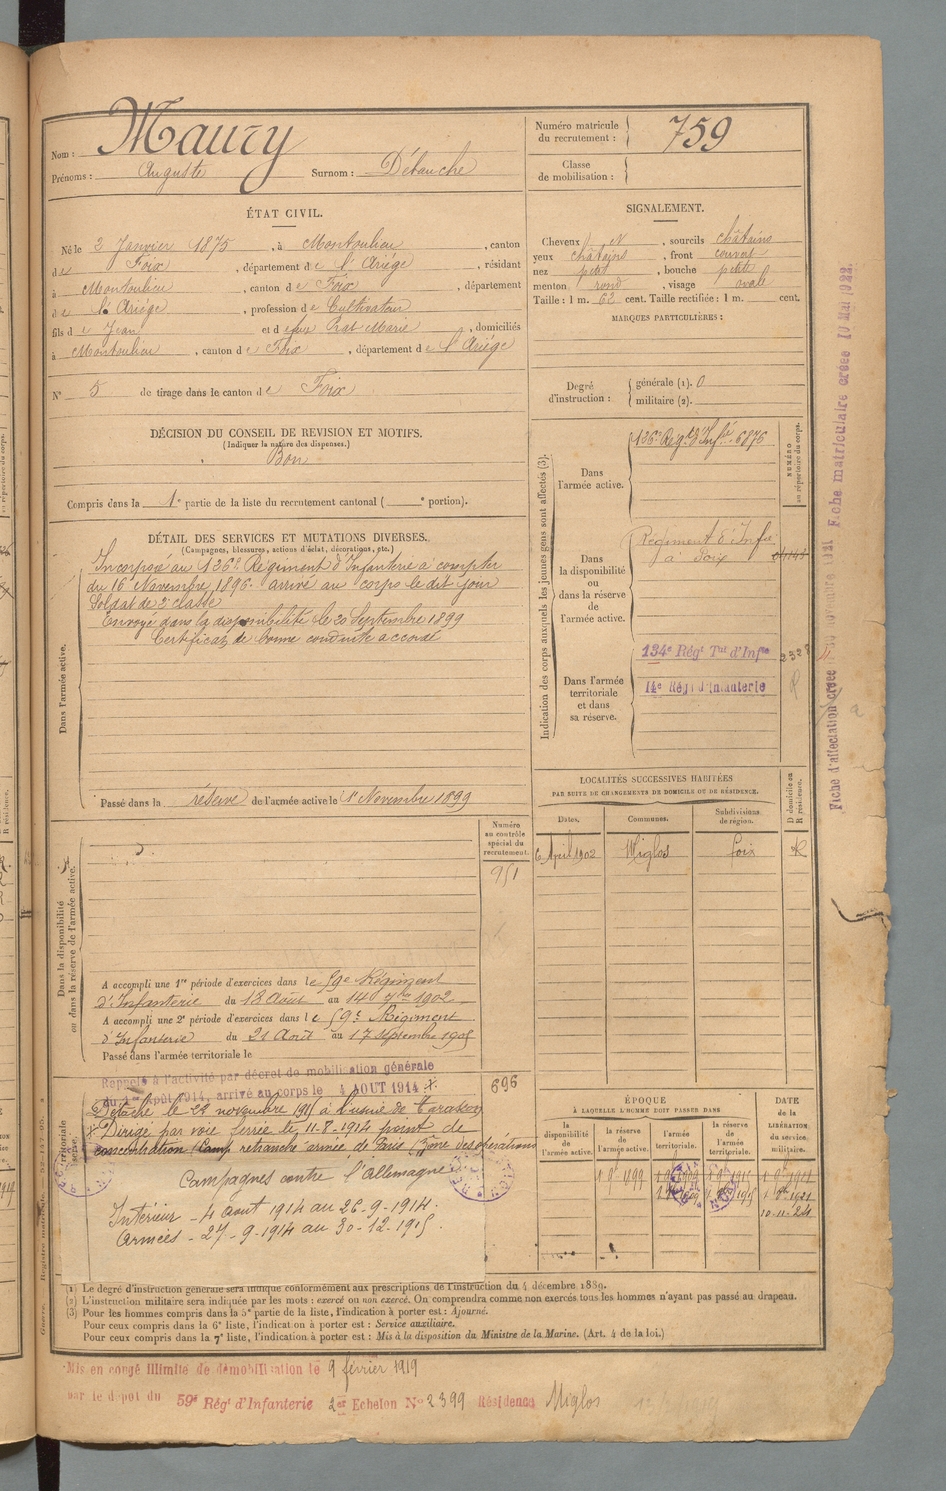 Nom : Maury
Prénoms : Auguste Surnom : Débauche
Numéro matricule du recrutement : 759
Classe de mobilisation :
ÉTAT CIVIL.
Né le 2 Janvier 1875, à Montoulieu, canton
de Foix, département de l'Ariège, résidant
à Montoulieu, canton de Foix, département
de l'Ariège, profession de Cultivateur
fils de Jean et de feue Prat Marie, domiciliés
à Montoulieu, canton de Foix, département de l'Ariège
N° 5 de tirage dans le canton de Foix
SIGNALEMENT.
Cheveux N, sourcils châtains
yeux châtains, front couvert
nez petit, bouche petite
menton rond, visage ovale
Taille : 1 m. 62 cent. Taille rectifiée : 1 m. cent.
MARQUES PARTICULIÈRES :
Degré d'instruction : générale (1). 0
militaire (2).
DÉCISION DU CONSEIL DE REVISION ET MOTIFS.
(Indiquer la nature des dispenses.)
Bon
Compris dans la 1e partie de la liste du recrutement cantonal ( e portion).
DÉTAIL DES SERVICES ET MUTATIONS DIVERSES.
(Campagnes, blessures, actions d'éclat, décorations, etc.)
Dans l'armée active.
Incorporé au 126e Régiment d'Infanterie à compter
du 16 Novembre 1896. arrivé au corps le dit jour
Soldat de 2e classe
Envoyé dans la disponibilité le 20 Septembre 1899
Certificat de bonne conduite accordé
Passé dans la réserve de l'armée active le 1er Novembre 1899
Indication des corps auxquels les jeunes gens sont affectés (3).
NUMÉRO au répertoire du corps.
Dans l'armée active.
126e Régt d'Infie 6876
Dans la disponibilité ou dans la réserve de l'armée active.
Régiment d'Infie
à Foix
Dans l'armée territoriale et dans sa réserve.
134e Régt Tal d'Infie
14e Régt d'Infanterie
LOCALITÉS SUCCESSIVES HABITÉES
PAR SUITE DE CHANGEMENTS DE DOMICILE OU DE RÉSIDENCE.
D domicile ou R résidence.
Dates. Communes. Subdivisions de région.
6 April 1902 Miglos Foix R
Dans la disponibilité ou dans la réserve de l'armée active.
Numéro au contrôle spécial du recrutement.
951
A accompli une 1re période d'exercices dans le 59e Régiment
d'Infanterie du 18 Août au 14 7bre 1902
A accompli une 2e période d'exercices dans le 59e Régiment
d'Infanterie du 21 Août au 17 Septembre 1905
Passé dans l'armée territoriale le
696
Rappelé à l'activité par décret de mobilisation générale
du 1er Août 1914, arrivé au corps le 4 AOUT 1914
Détaché le 22 novembre 1915 à l'usine de Tarascon
Dirigé par voie ferrée le 11-8-1914 point de
concentration (Camp retranché armée de Paris) (Zone des opérations
Campagnes contre l'Allemagne
Intérieur - 4 août 1914 au 26-9-1914.
Armées - 27-9-1914 au 30-12-1915
ÉPOQUE
À LAQUELLE L'HOMME DOIT PASSER DANS
la disponibilité de l'armée active. la réserve de l'armée active. l'armée territoriale. la réserve de l'armée territoriale.
DATE de la LIBÉRATION du service militaire.
10-11-24
(1) Le degré d'instruction générale sera indiqué conformément aux prescriptions de l'instruction du 4 décembre 1889.
(2) L'instruction militaire sera indiquée par les mots : exercé ou non exercé. On comprendra comme non exercés tous les hommes n'ayant pas passé au drapeau.
(3) Pour les hommes compris dans la 5e partie de la liste, l'indication à porter est : Ajourné.
Pour ceux compris dans la 6e liste, l'indication à porter est : Service auxiliaire.
Pour ceux compris dans la 7e liste, l'indication à porter est : Mis à la disposition du Ministre de la Marine. (Art. 4 de la loi.)
Mis en congé illimité de démobilisation le 9 février 1919
par le dépôt du 59e Régt d'Infanterie 2er Echelon N° 2399 Résidence Miglos
Fiche matriculaire créée 10 Mai 1922.